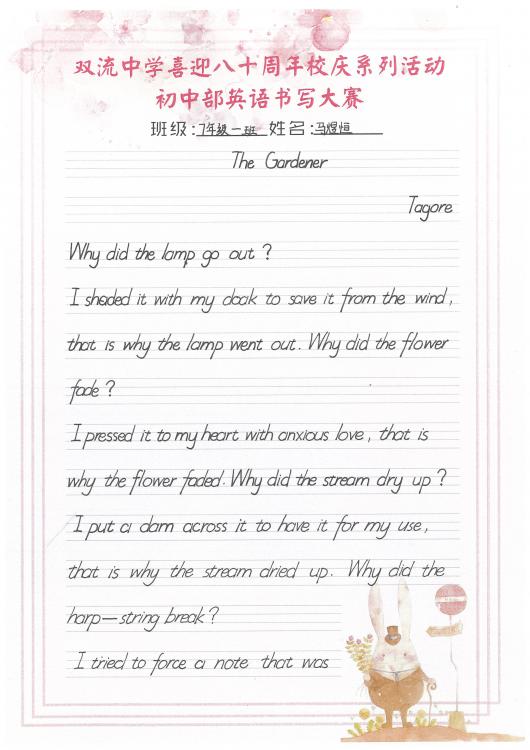 双流中学喜迎八十周年校庆系列活动
初中部英语书写大赛
班级:7年级一班 姓名:马煜恒
The Gardener
Tagore
Why did the lamp go out ?
I shaded it with my cloak to save it from the wind,
that is why the lamp went out. Why did the flower
fade ?
I pressed it to my heart with anxious love, that is
why the flower faded. Why did the stream dry up ?
I put a dam across it to have it for my use,
that is why the stream dried up. Why did the
harp—string break ?
I tried to force a note that was